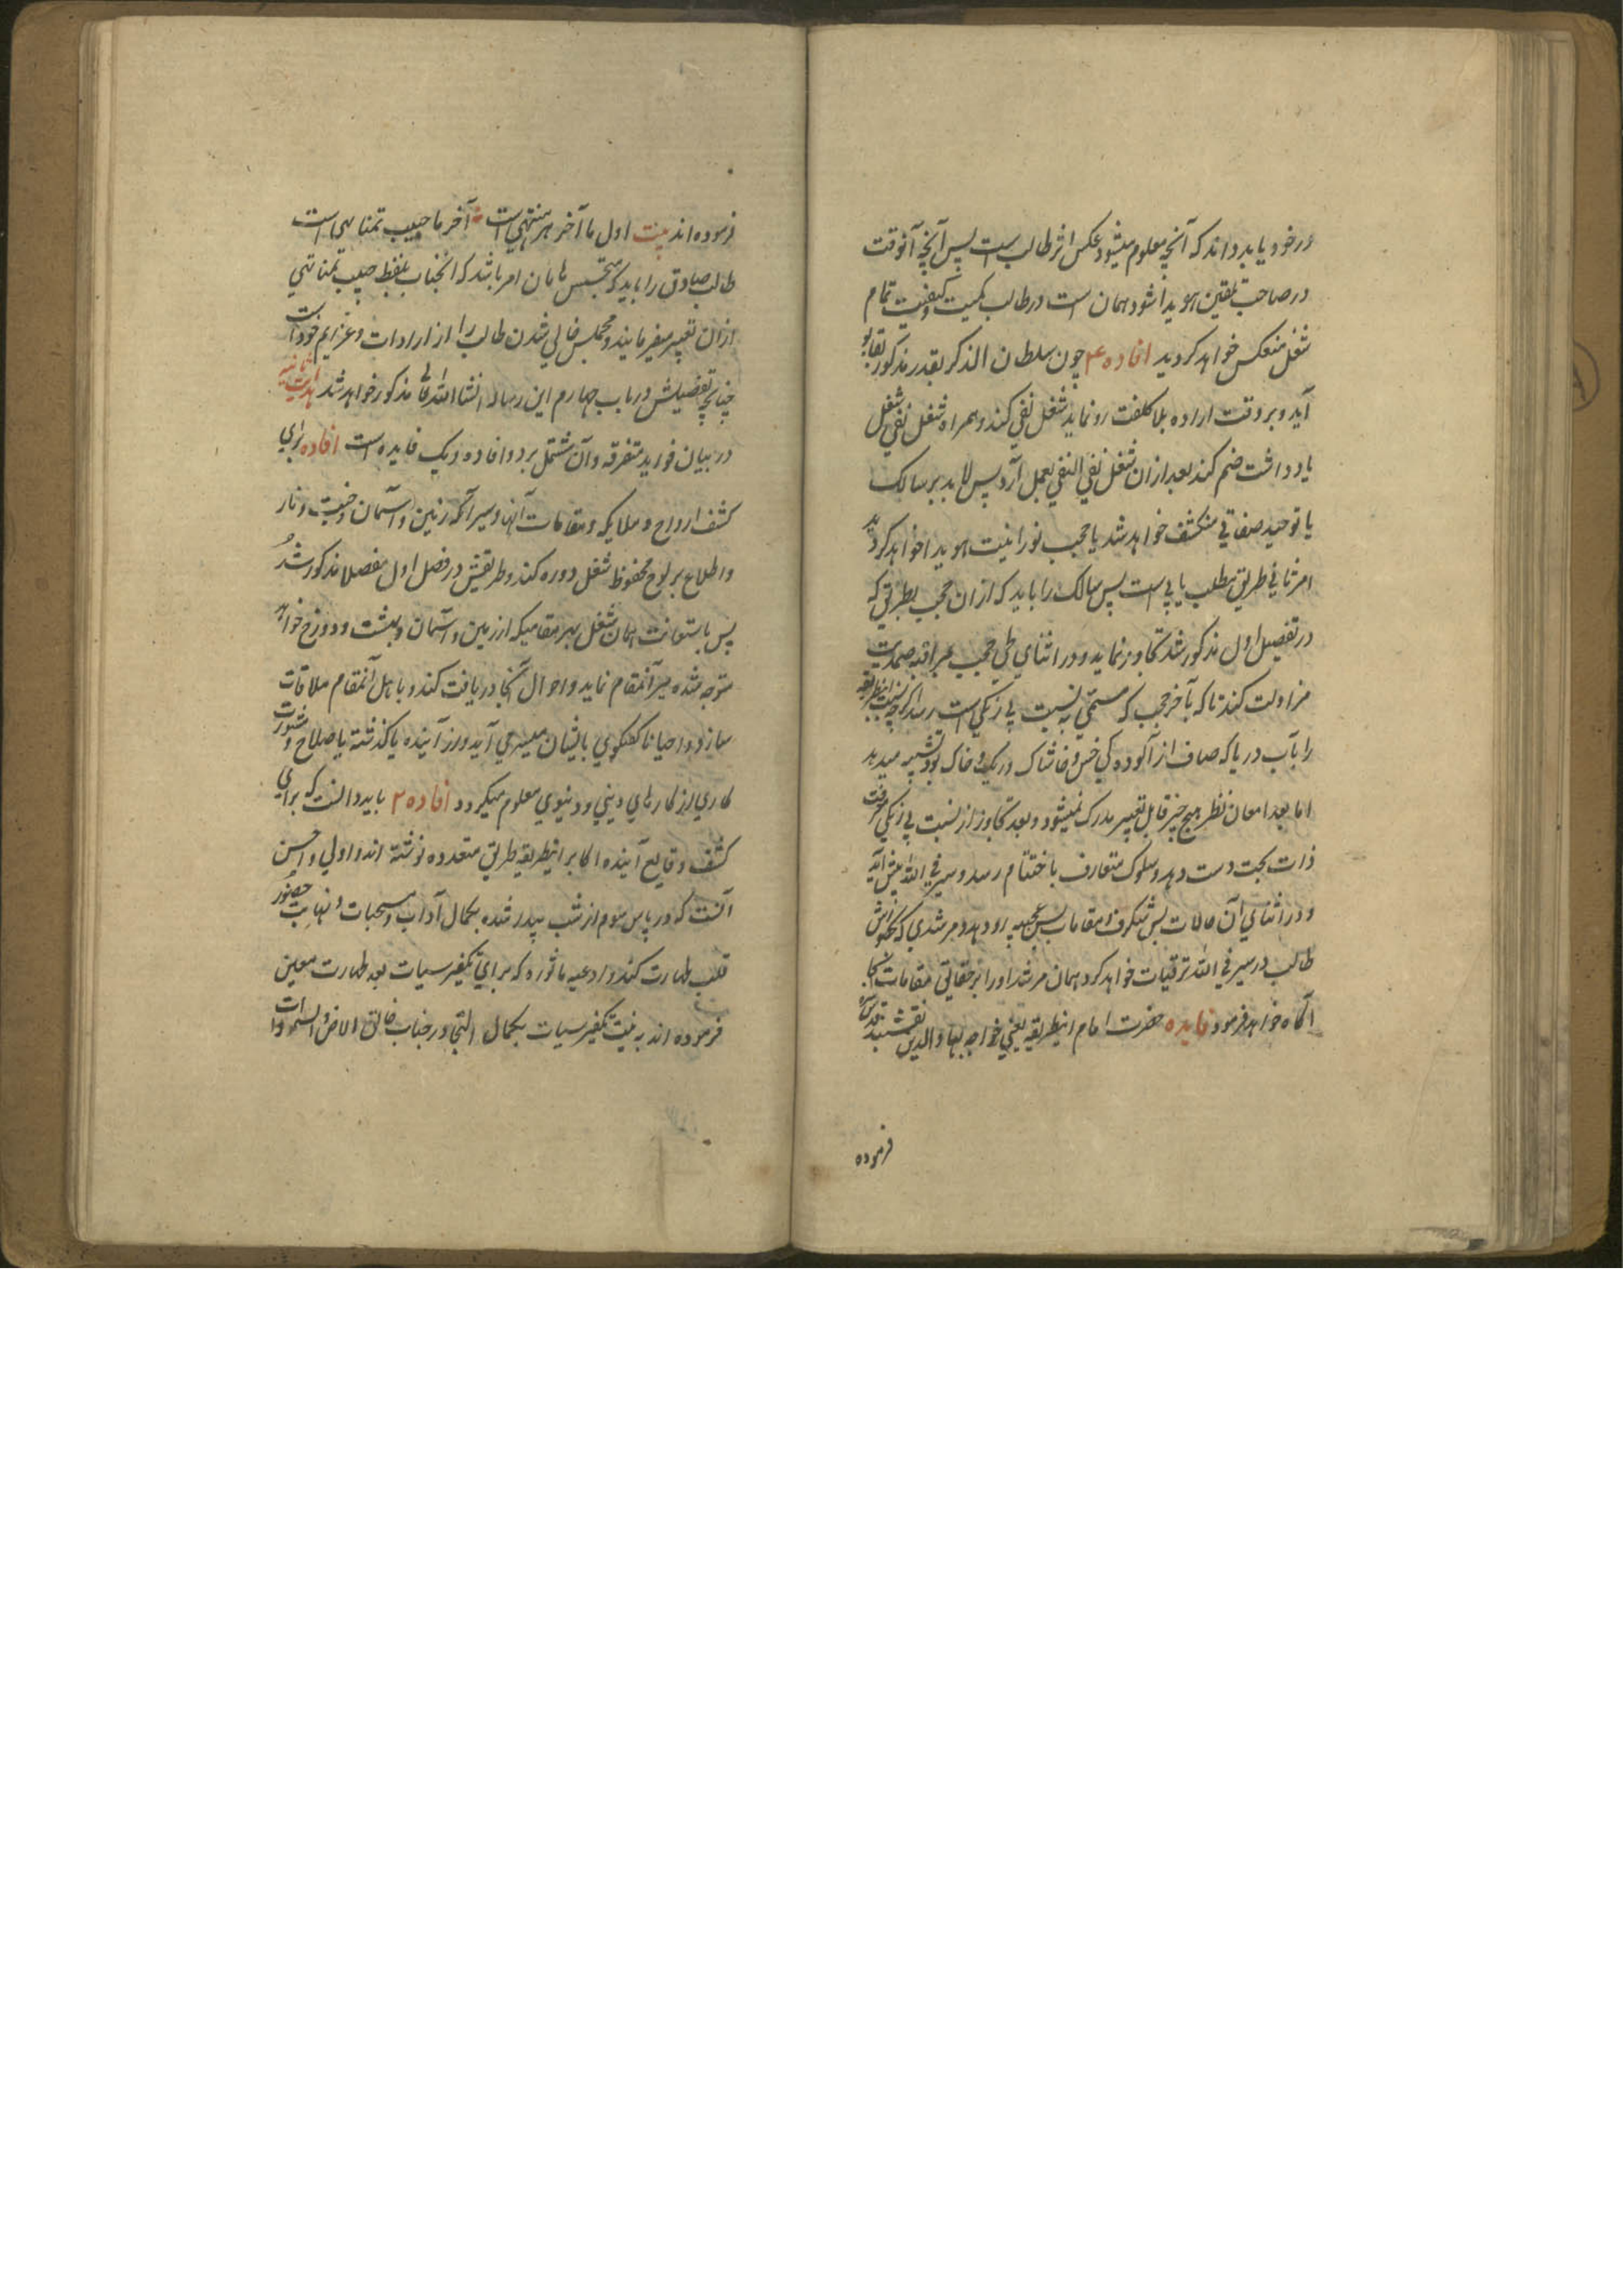 در خود یابد داند که آنچه معلوم میشود عکس اثر طالب است پس آنچه آنوقت
در صاحب تلقین هویدا شود همان است در طالب کمیت و کیفیت تمام
شغل منعکس خواهد کردید افاده ۴ چون سلطان الذکر بقدر مذکور بقابو
آید و بر وقت اراده بلا کلفت رو نماید شغل نفی کند و همراه شغل نفی شغل
یادداشت ضم کند بعد ازان شغل نفی النفی بعمل آرد پس لابد بر سالک
یا توحید صفاتی منکشف خواهد شد یا حجب نورانیت هویدا خواهد کردید
امر ثانی طریق مطلب یابی است پس سالک را باید که ازان حجب بطریقی که
در تفصیل اول مذکور شد تجاوز نماید و در اثنای طی حجب مراقبه صمدیت
مزاولت کند تا که بآخر حجب که مسمی به نسبت بی رنکی است رسد اکرچه نسبت اینطریقه
را بآب دریا که صاف از آلوده کی خس و خاشاک و ریک و خاک بود تشبیه میدهد
اما بعد امعان نظر هیچ چیز قابل تعبیر مدرک نمیشود و بعد تجاوز از نسبت بی رنکی معرفت
ذات بحت دست دهد و سلوک متعارف باختتام رسد و سیر فی الله پیش آید
و در اثنای آن حالات بس شکرف و مقامات بس عجیبه رو دهد و مرشدی که
طالب در سیر فی الله ترقیات خواهد کرد همان مرشد او را بر حقایق مقامات آنجا
آکاه خواهد فرمود فایده حضرت امام اینطریقه یعنی خواجه بهاء الدین نقشبند قدس سره
فرموده
فرموده اند بیت اول ما آخر هر منتهی است آخر ما جیب تمنا تهی است
طالب صادق را باید که متجسس بامان امر باشد که آنجناب بلفظ جیب تمنا تهی
ازان تعبیر میفرمایند و مجملش خالی شدن طالب را از ارادات و عزایم خود است
چنانچه تفصیلش در باب چهارم این رساله انشاالله تعالی مذکور خواهد شد هدایت ثانیه
در بیان فواید متفرقه و آن مشتمل بر دو افاده و یک فایده است افاده برای
کشف ارواح و ملایکه و مقامات آنها و سیر امکنه زمین و آسمان و جنت و نار
و اطلاع بر لوح محفوظ شغل دوره کند و طریقش در فصل اول مفصلا مذکور شد
پس باستعانت همان شغل بهر مقامیکه از زمین و آسمان و بهشت و دوزخ خواهد
متوجه شده سیر آنمقام نماید و احوال آنجا دریافت کند و با اهل آنمقام ملاقات
سازد و احیانا کفتکوی باایشان میسر می آید و از آینده یا کذشته یا صلاح و مشورت
کاری از کارهای دینی و دنیوی معلوم میکردد افاده ۲ باید دانست که برای
کشف وقایع آینده اکابر اینطریقه طریق متعدده نوشته اند و اولی و احسن
آنست که در پاس سوم از شب بیدار شده بکمال آداب و مستحبات و نهایت حضور
قلب طهارت کند و ادعیه ماثوره که برای تکفیر سیات بعد طهارت معین
فرموده اند به نیت تکفیر سیات بکمال التجا در جناب خالق الارض و السموات